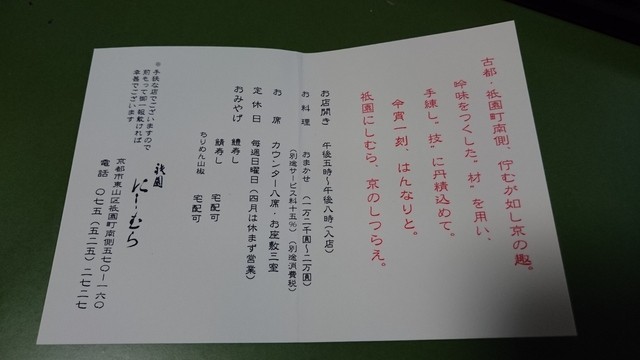 古都・祇園町南側、佇むが如し京の趣。
吟味をつくした"材"を用い、
手練し"技"に丹精込めて。
今宵一刻、はんなりと。
祇園にしむら、京のしつらえ。
お店開き 午後五時〜午後八時（入店）
お料理 おまかせ（一万二千圓〜二万圓）
（別途サービス料十五％）（別途消費税）
お席 カウンター八席・お座敷三室
定休日 毎週日曜日（四月は休まず営業）
おみやげ 鱧寿し 宅配可
鯖寿し 宅配可
ちりめん山椒
祇園 にしむら
京都市東山区祇園町南側五七〇ー一六〇
電話 〇七五（五二五）二七二七
※手狭な店でございますので
前もって御一報戴ければ
幸甚でございます